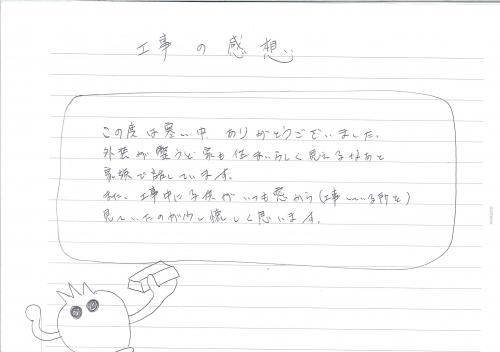 工事の感想
この度は暑い中 ありがとうございました。
外装が整うと家も住まいらしく見えるなあと
家族で話しています。
私は、工事中に子供がいつも窓から(工事している所を)
見ていたのが少し懐しく思います。